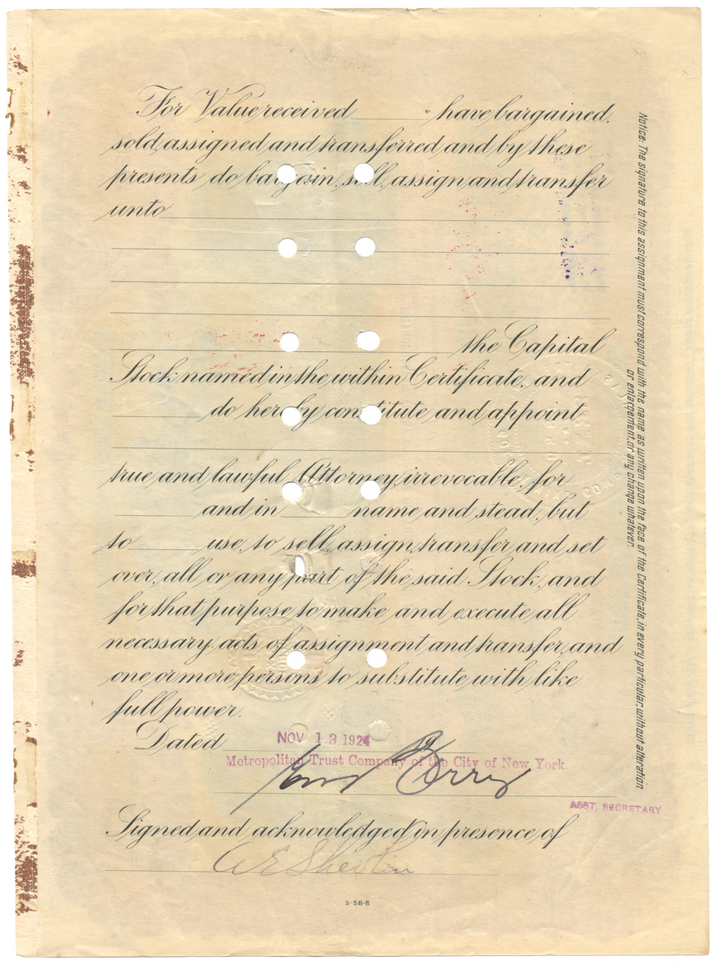 For Value received have bargained,
sold, assigned and transferred and by these
presents do bargain, sell, assign and transfer
unto
the Capital
Stock named in the within Certificate, and
do hereby constitute and appoint
true and lawful Attorney, irrevocable, for
and in name and stead, but
to use, to sell, assign, transfer and set
over, all or any part of the said Stock, and
for that purpose to make and execute all
necessary acts of assignment and transfer, and
one or more persons to substitute with like
full power.
Dated NOV 13 1924
Metropolitan Trust Company of the City of New York
By Berry
ASST. SECRETARY
Signed and acknowledged in presence of
S-56-6
Notice: The signature to this assignment must correspond with the name as written upon the face of the Certificate, in every particular, without alteration
or enlargement, or any change whatever.